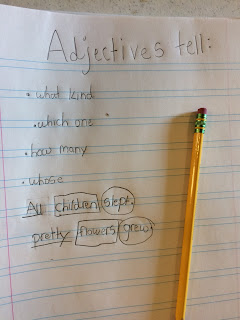 Adjectives tell:
• what kind
• which one
• how many
• whose
All children slept.
pretty flowers grew.